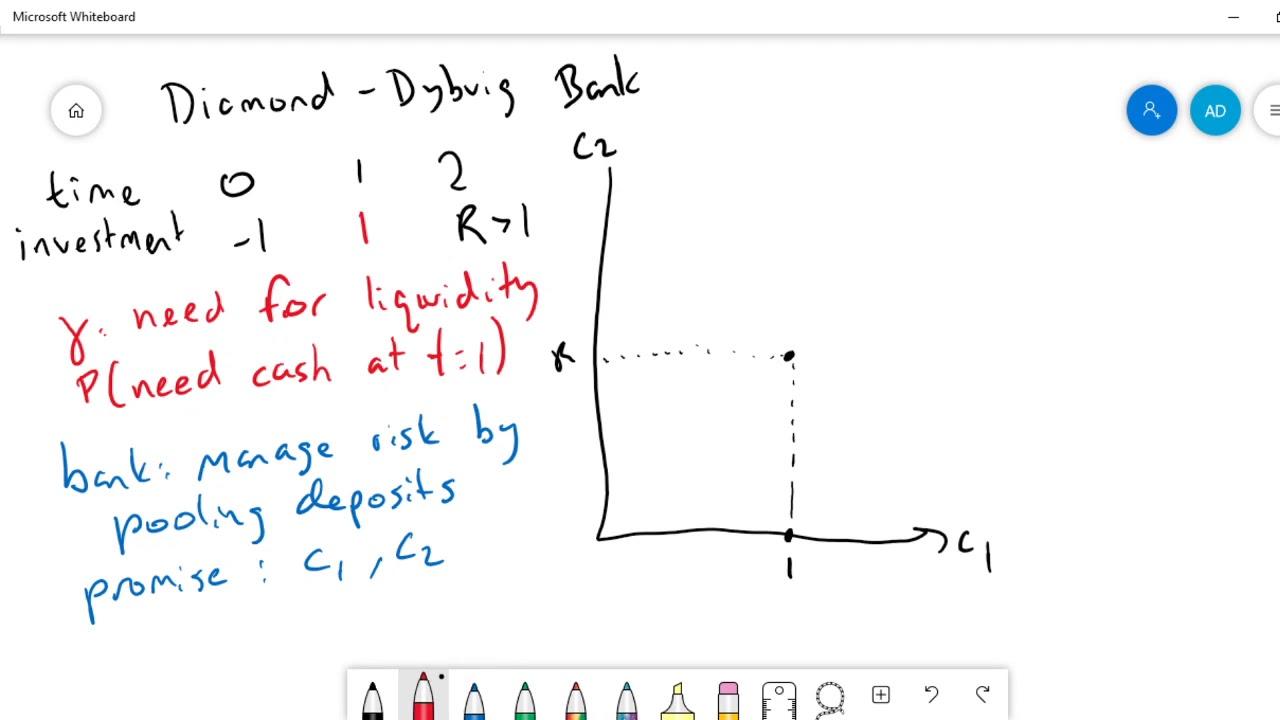 Microsoft Whiteboard
Diamond - Dybvig Bank
AD
time 0 1 2
investment -1 1 R > 1
γ: need for liquidity
P(need cash at t=1)
bank: manage risk by
pooling deposits
promise: C1, C2
C2
R
1
C1